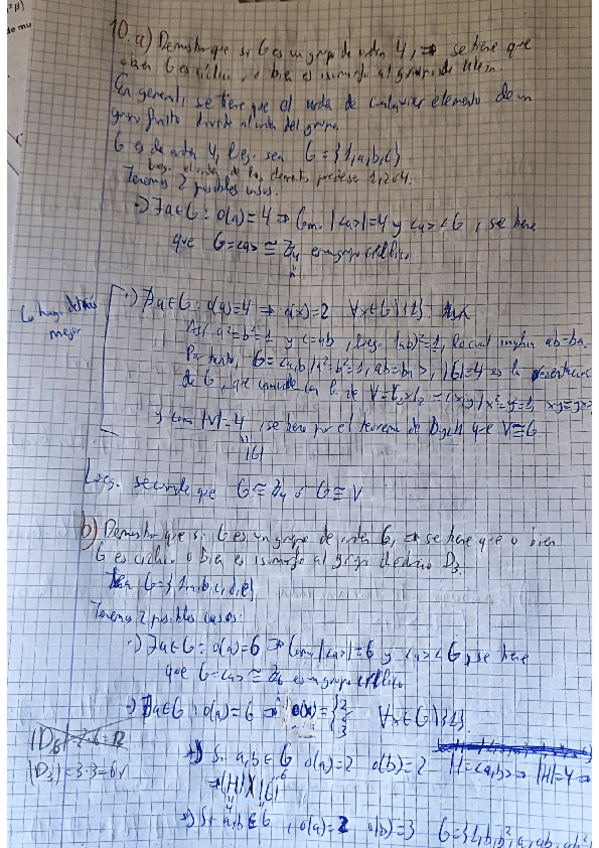 10. a) Demostrar que si G es un grupo de orden 4, ⇒ se tiene que
o bien G es cíclico, o bien es isomorfo al grupo de Klein.
En general, se tiene que el orden de cualquier elemento de un
grupo finito divide al orden del grupo.
G es de orden 4, luego sea G = {1,a,b,c}
luego el orden de los elementos puede ser 1, 2 o 4.
Tenemos 2 posibles casos:
·) ∃a∈G : o(a)=4 ⇒ Como |<a>|=4 y <a> < G, se tiene
que G=<a> ≅ Z4 es un grupo cíclico
·) ∄a∈G : o(a)=4 ⇒ o(x)=2 ∀x∈G\{1}.
Lo hago detrás
mejor
Así a²=b²=1 y c=ab, luego (ab)²=1, lo cual implica ab=ba.
Por tanto, G=<a,b | a²=b²=1, ab=ba>, |G|=4 es la presentación
de G, que coincide con la de V=C2×C2=<x,y | x²=y²=1, xy=yx>
y como |V|=4, se tiene por el teorema de Dyck que V≅G
|G|
Luego se cumple que G≅Z4 ó G≅V
b) Demostrar que si G es un grupo de orden 6, ⇒ se tiene que o bien
G es cíclico o bien es isomorfo al grupo diedrico D3.
Sea G={1,a,b,c,d,e}
Tenemos 2 posibles casos:
·) ∃a∈G : o(a)=6 ⇒ Como |<a>|=6 y <a> < G, se tiene
que G=<a> ≅ Z6 es un grupo cíclico
·) ∄a∈G : o(a)=6 ⇒ o(x)={2 3 ∀x∈G\{1}.
|D6|=2·6=12
|D3|=3·3=6
Si a,b∈G o(a)=2 o(b)=2 H=<a,b> ⇒ |H|=4 ⇒
⇒ |H| ∤ |G|
4 6
Si a,b∈G, o(a)=2 o(b)=3 G={1,b,b²,a,ab,ab²